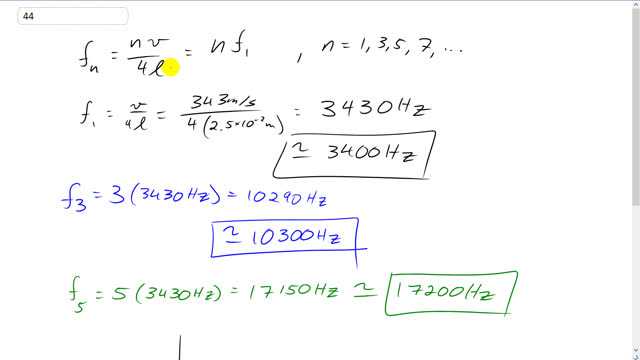 44
fₙ = nv/4l = n f₁ , n = 1, 3, 5, 7, ...
f₁ = v/4l = 343m/s / 4(2.5×10⁻²m) = 3430Hz
≃ 3400Hz
f₃ = 3(3430Hz) = 10290Hz
≃ 10300Hz
f₅ = 5(3430Hz) = 17150Hz ≃ 17200Hz